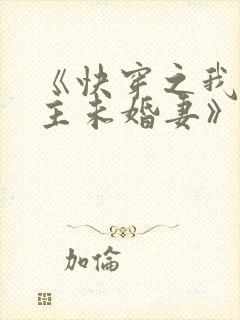 《快穿之我
主未婚妻》
加倫